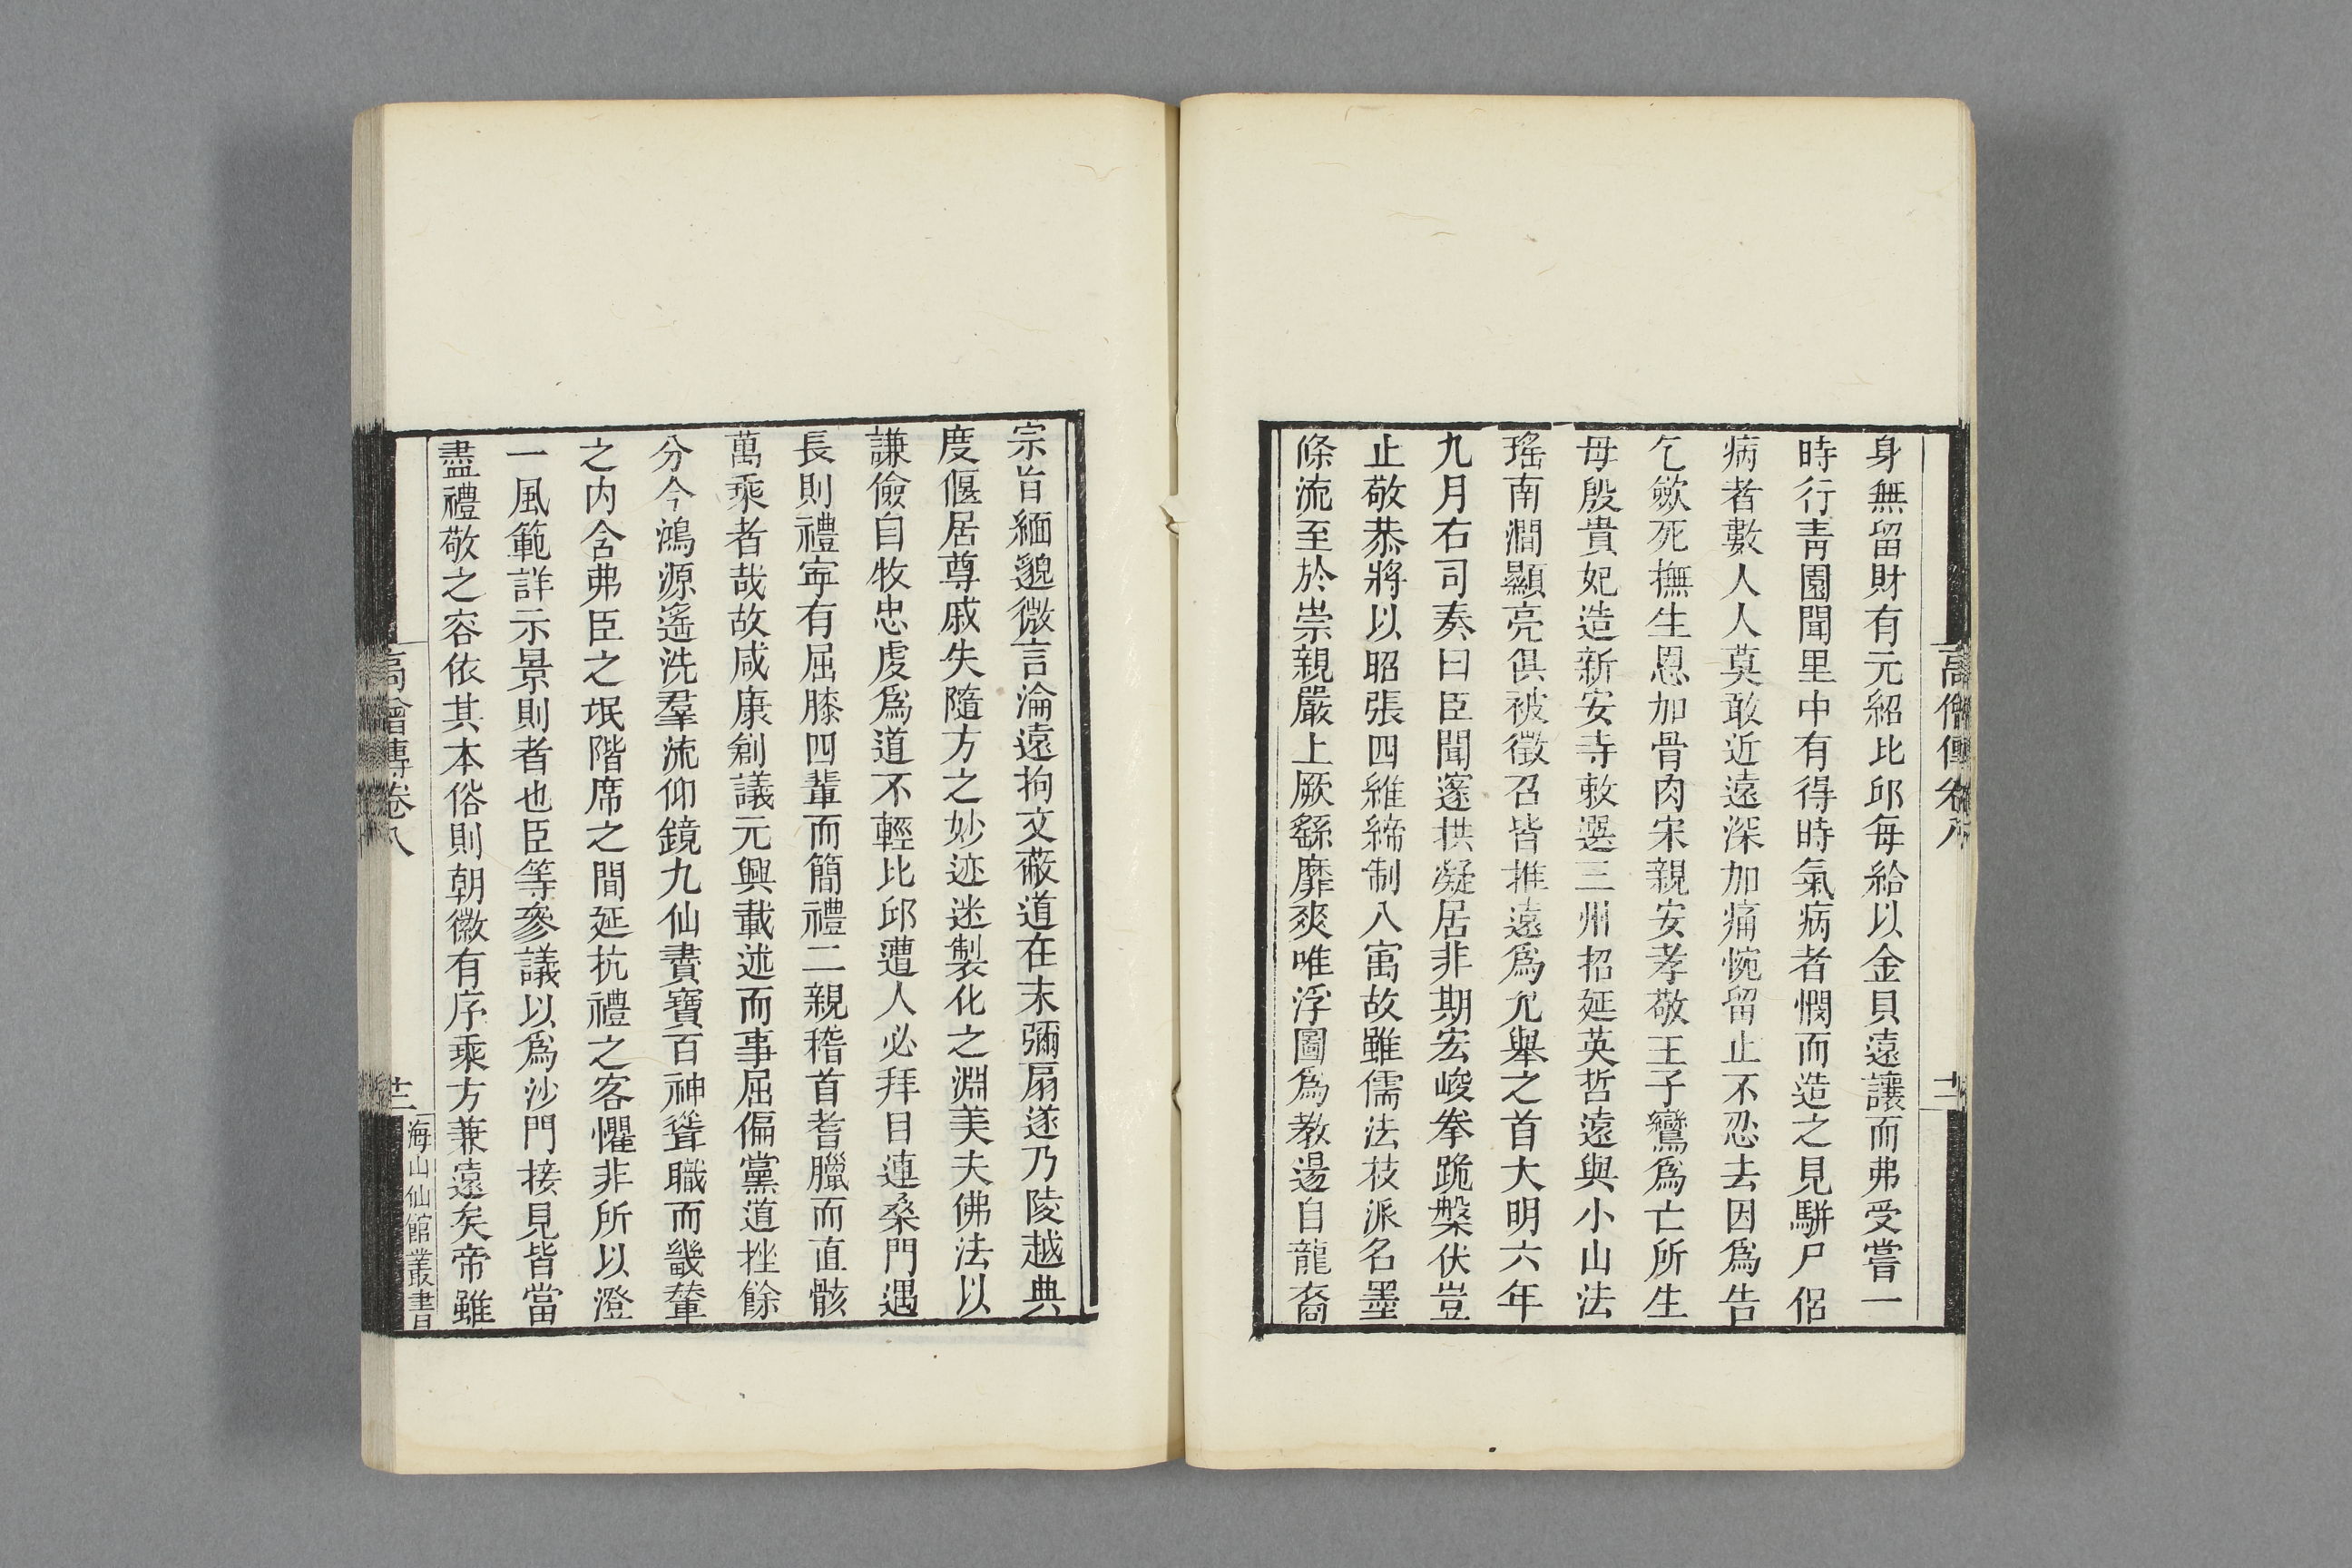 身無留財有元紹比邱每給以金貝遠讓而弗受嘗一
時行靑園聞里中有得時氣病者憫而造之見騈尸侶
病者數人人莫敢近遠深加痛惋留止不忍去因爲告
乞斂死撫生恩加骨肉宋親安孝敬王子鸞爲亡所生
母殷貴妃造新安寺敕選三州招延英哲遠與小山法
瑤南澗顯亮俱被徵召皆推遠爲允舉之首大明六年
九月右司奏曰臣聞邃拱凝居非期宏峻拳跪槃伏豈
止敬恭將以昭張四維締制八寓故雖儒法枝派名墨
條流至於崇親嚴上厥繇靡爽唯浮圖爲教逷自龍裔
高僧傳卷八
宗旨緬邈微言淪遠拘文蔽道在末彌扇遂乃陵越典
度偃居尊戚失隨方之妙迹迷製化之淵美夫佛法以
謙儉自牧忠虔爲道不輕比邱遭人必拜目連桑門遇
長則禮寧有屈膝四輩而簡禮二親稽首耆臘而直骸
萬乘者哉故咸康創議元興載述而事屈偏黨道挫餘
分今鴻源遙洗羣流仰鏡九仙賮寶百神聳職而畿輦
之內含弗臣之氓階席之間延抗禮之客懼非所以澄
一風範詳示景則者也臣等參議以爲沙門接見皆當
盡禮敬之容依其本俗則朝徽有序乘方兼遠矣帝雖
高僧傳卷八
海山仙館叢書